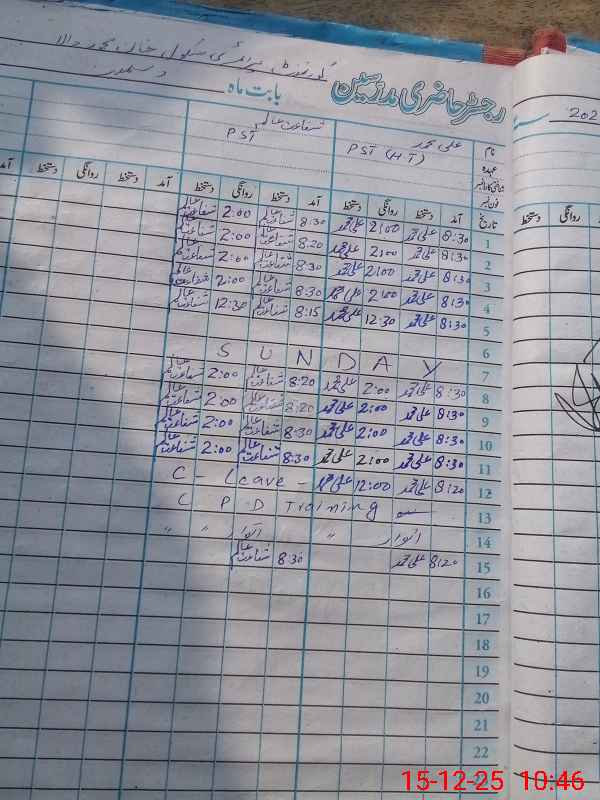 گورنمنٹ پرائمری سکول خان محمد والا
رجسٹر حاضری مدرسین بابت ماہ دسمبر
202
نام علی محمد شفاعت عالم
عہدہ PST (HT) PST
شناختی کارڈ نمبر
فون نمبر
تاریخ آمد دستخط روانگی دستخط آمد دستخط روانگی دستخط آمد دستخط روانگی دستخط آمد
روانگی دستخط
1 8:30 علی محمد 2:00 علی محمد 8:30 شفاعت عالم 2:00 شفاعت عالم
2 8:30 علی محمد 2:00 علی محمد 8:20 شفاعت عالم 2:00 شفاعت عالم
3 8:30 علی محمد 2:00 علی محمد 8:30 شفاعت عالم 2:00 شفاعت عالم
4 8:30 علی محمد 2:00 علی محمد 8:30 شفاعت عالم 2:00 شفاعت عالم
5 8:30 علی محمد 12:30 علی محمد 8:15 شفاعت عالم 12:30 شفاعت عالم
6
7 SUNDAY
8 8:30 علی محمد 2:00 علی محمد 8:20 شفاعت عالم 2:00 شفاعت عالم
9 8:30 علی محمد 2:00 علی محمد 8:20 شفاعت عالم 2:00 شفاعت عالم
10 8:30 علی محمد 2:00 علی محمد 8:30 شفاعت عالم 2:00 شفاعت عالم
11 8:30 علی محمد 2:00 علی محمد 8:30 شفاعت عالم 2:00 شفاعت عالم
12 8:20 علی محمد 12:00 علی محمد C - Leave -
13 C P D Training
14 اتوار " اتوار " "
15 8:20 علی محمد 8:30 شفاعت عالم
16
17
18
19
20
21
22
15-12-25 10:46